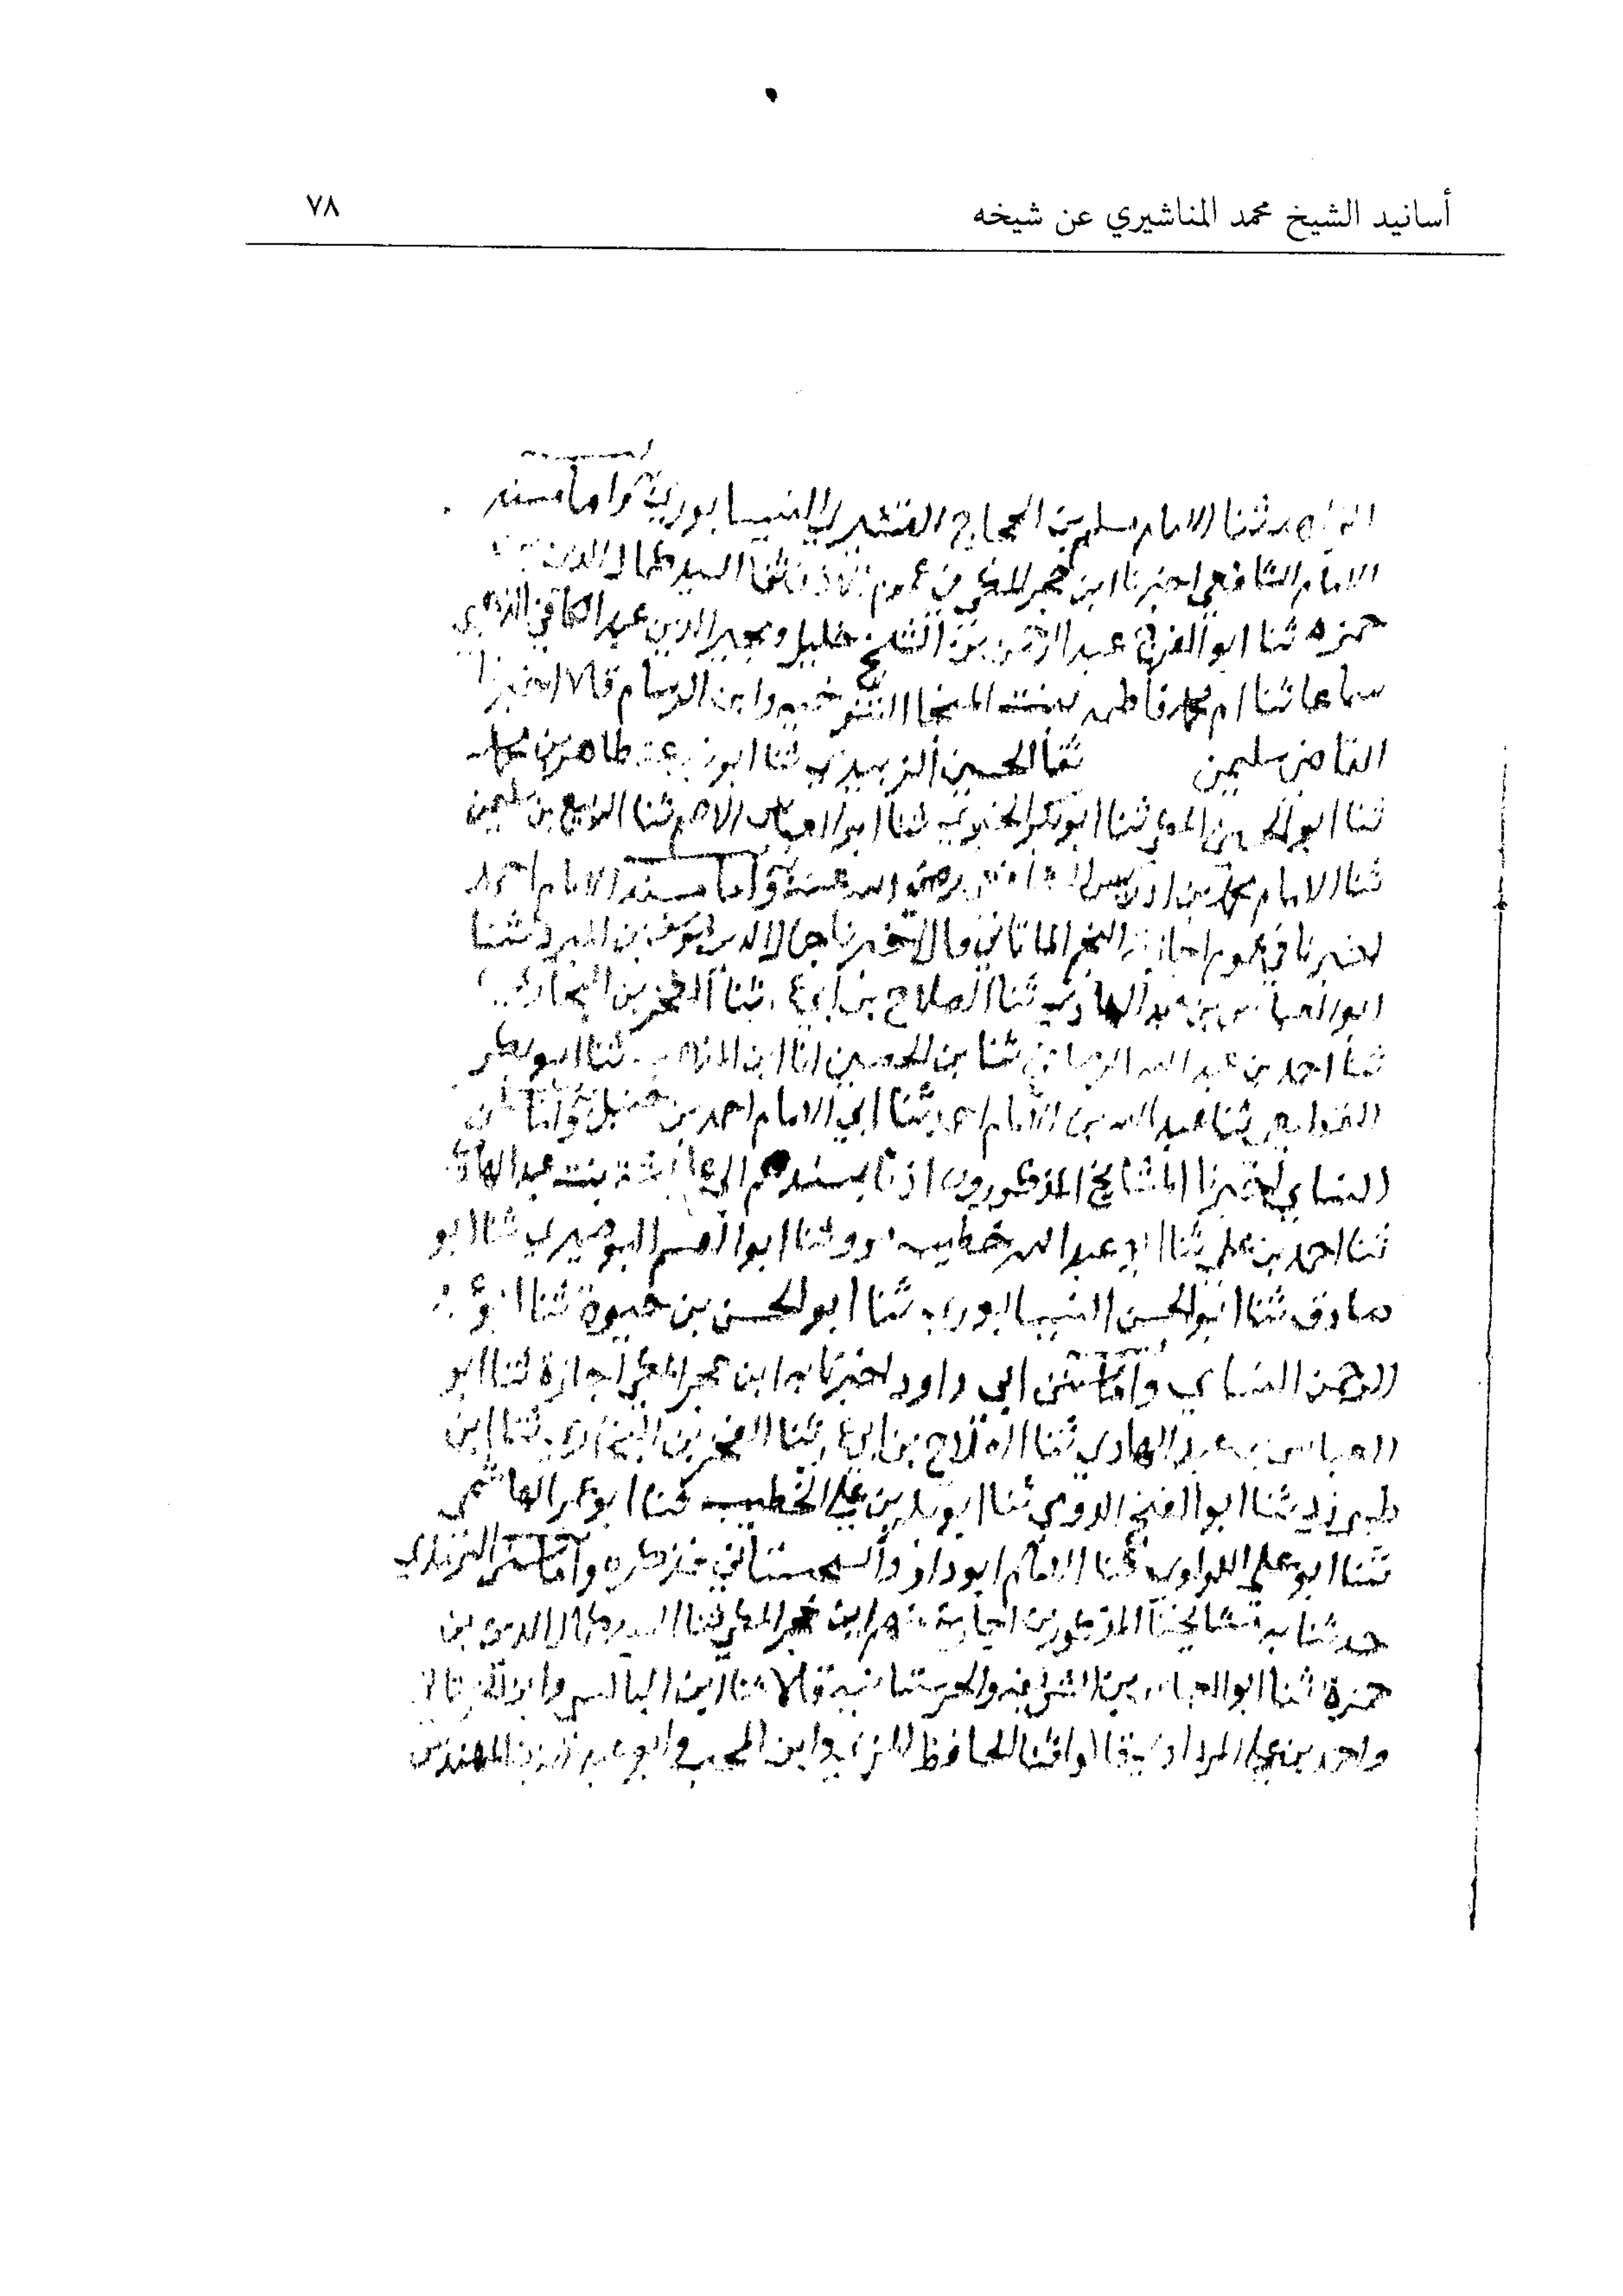 أسانيد الشيخ محمد المناشيري عن شيخه
٧٨
حدثنا الامام مسلم بن الحجاج القشيري النيسابوري واما مسند
الامام الشافعي اخبرنا ابن حجر المكي في عموم ثنا السيد كمال الدين
حمزه ثنا ابو الفرج عبد الرحمن بن الشيخ خليل ومجير الدين عبد الكافي الذهبي
سماعا ثنا ام محمد فاطمه بنت المنجا التنوخيه وابن الرسام قالا اخبرنا
القاضي سليمن ثنا الحسين الزبيدي ثنا ابو زرعة طاهر بن محمد
ثنا ابو الحسن المكي ثنا ابو بكر الحيري ثنا ابو العباس الاصم ثنا الربيع بن سليمن
ثنا الامام محمد بن ادريس الشافعي رضي الله عنه واما مسند الامام احمد
اخبرنا في عموم اجازته النجم الماتاني قال اخبرنا جمال الدين يوسف بن المبرد ثنا
ابو العباس بن عبد الهادي ثنا الصلاح بن ابي عمر ثنا الفخر بن البخاري
ثنا احمد بن عبد الله الرصافي ثنا بن الحصين انا ابن المذهب ثنا ابو بكر
القطيعي ثنا عبد الله بن الامام احمد ثنا ابي الامام احمد بن حنبل واما سنن
النساي اخبرنا المشايخ المذكورون اذنا بسندهم الى عائشة بنت عبد الهادي
ثنا احمد بن علي ثنا ابو عبد الله خطيب مردا ثنا ابو القسم البوصيري ثنا ابو
صادق ثنا ابو الحسن النيسابوري ثنا ابو الحسن بن حيوة ثنا ابو
الرحمن النساي واما سنن ابي داود اخبرنا به ابن حجر المكي اجازة ثنا ابو
العباس بن عبد الهادي ثنا الصلاح بن ابي عمر ثنا الفخر بن البخاري ثنا ابن
طبرزد ثنا ابو الفتح الدومي ثنا ابو بكر بن علي الخطيب ثنا ابو عمر الهاشمي
ثنا ابو علي اللولوي ثنا الامام ابو داود السجستاني فذكره واما سنن الترمذي
حدثنا به مشايخنا المذكورين اجازة منهم ابن حجر المكي ثنا السيد كمال الدين بن
حمزة ثنا ابو العباس بن الشرايفه والحرستانيه قالا ثنا ابن البالسي وابن
واحمد بن علي المرداوي قالوا ثنا الحافظ المزي وابن المحب وابو عبد الله بن المهندس